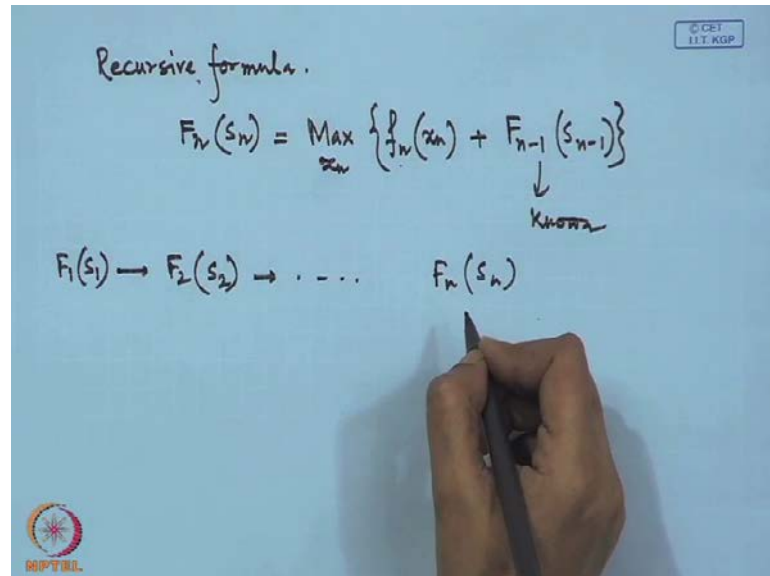 © CET
I.I.T. KGP
Recursive formula.
Fₙ(Sₙ) = Max {fₙ(xₙ) + Fₙ₋₁(Sₙ₋₁)}
xₙ
↓
Known
F₁(S₁) → F₂(S₂) → · - · · Fₙ(Sₙ)
NPTEL